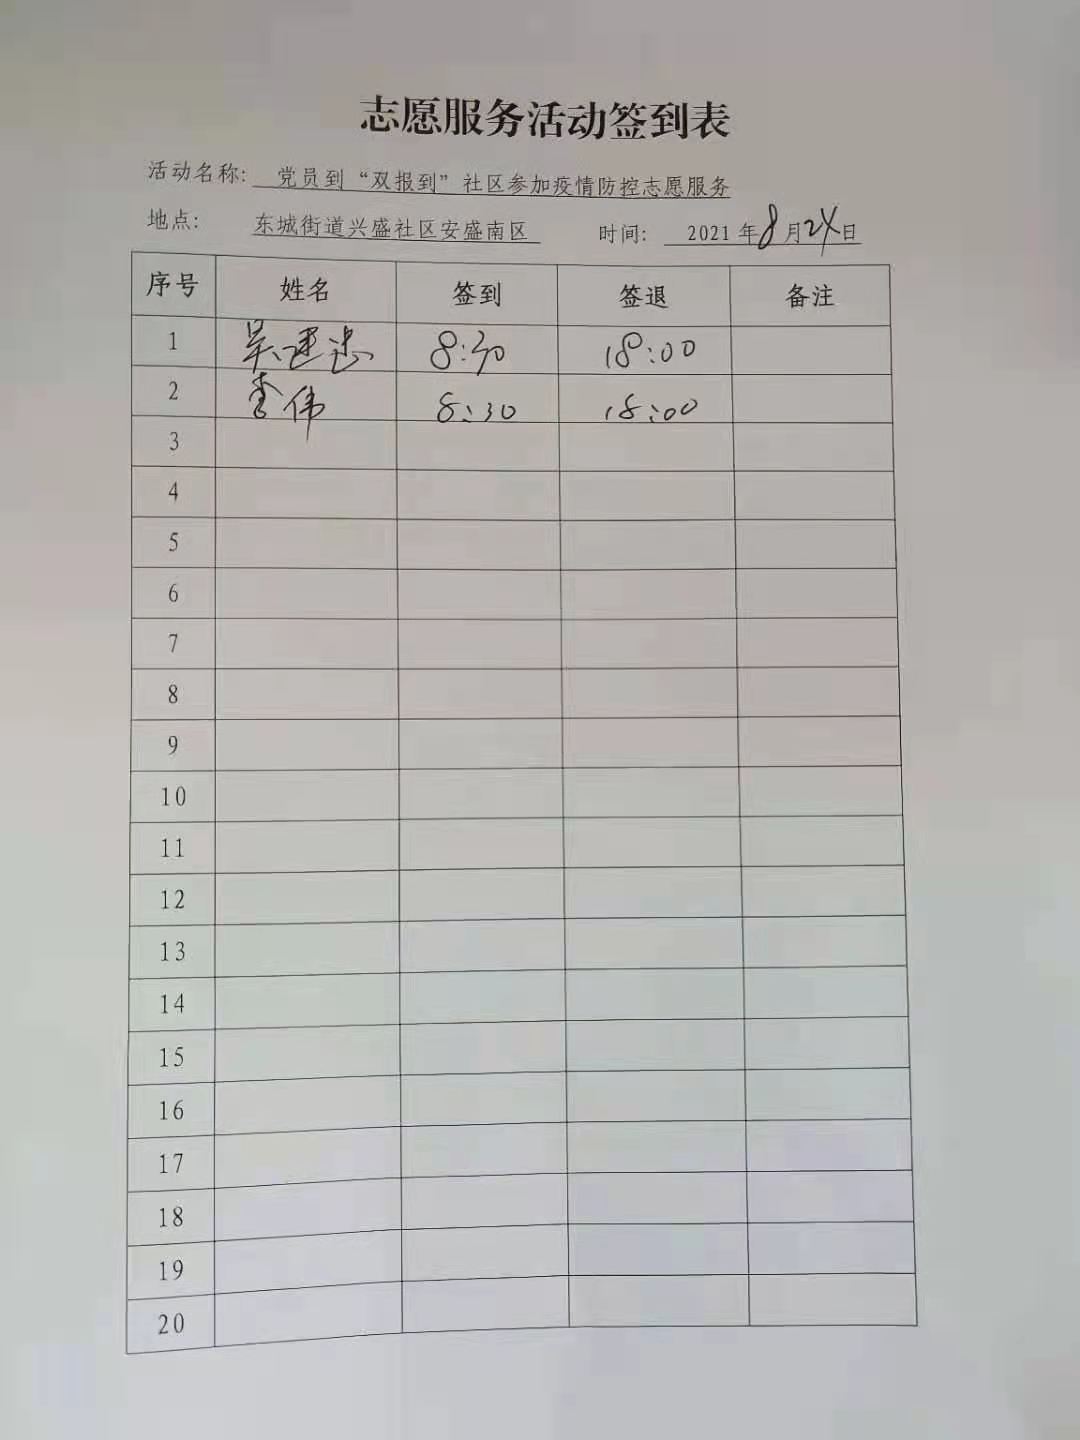 志愿服务活动签到表
活动名称: 党员到“双报到”社区参加疫情防控志愿服务
地点: 东城街道兴盛社区安盛南区 时间: 2021年8月24日
序号 姓名 签到 签退 备注
1 吴建忠 8:30 18:00
2 李伟 8:30 18:00
3
4
5
6
7
8
9
10
11
12
13
14
15
16
17
18
19
20